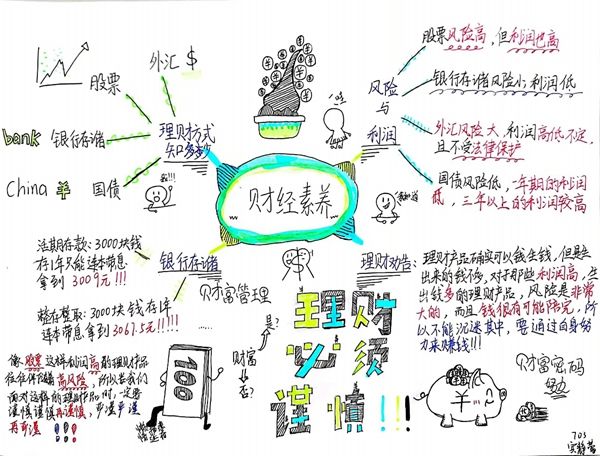 股票风险高，但利润也高
外汇 $
股票
银行存储风险小，利润低
风险
与
利润
bank 银行存储
理财方式
知多少
外汇风险大，利润高低不定，
且不受法律保护
China 羊 国债
财经素养
国债风险低，一年期的利润
低，三年以上的利润较高
活期存款：3000块钱
存1年只能连本带息
拿到 3009元!!!
银行存储
财富管理
整存整取：3000块钱存1年
连本带息拿到3067.5元!!!!!
理财
必须
谨慎!!!
是?
财富
否?
100
像股票这样利润高的理财产品
高风险，所以当我们
面对这样的理财产品时，一定要
谨慎谨慎再谨慎
理财产品确实可以钱生钱，但是生
出来的钱不多，对于那些利润高，生
出钱多的理财产品，风险是非常
大的，而且钱很有可能陪完，所
以不能沉迷其中，要通过自身努
力来赚钱!!!
财富密码
703